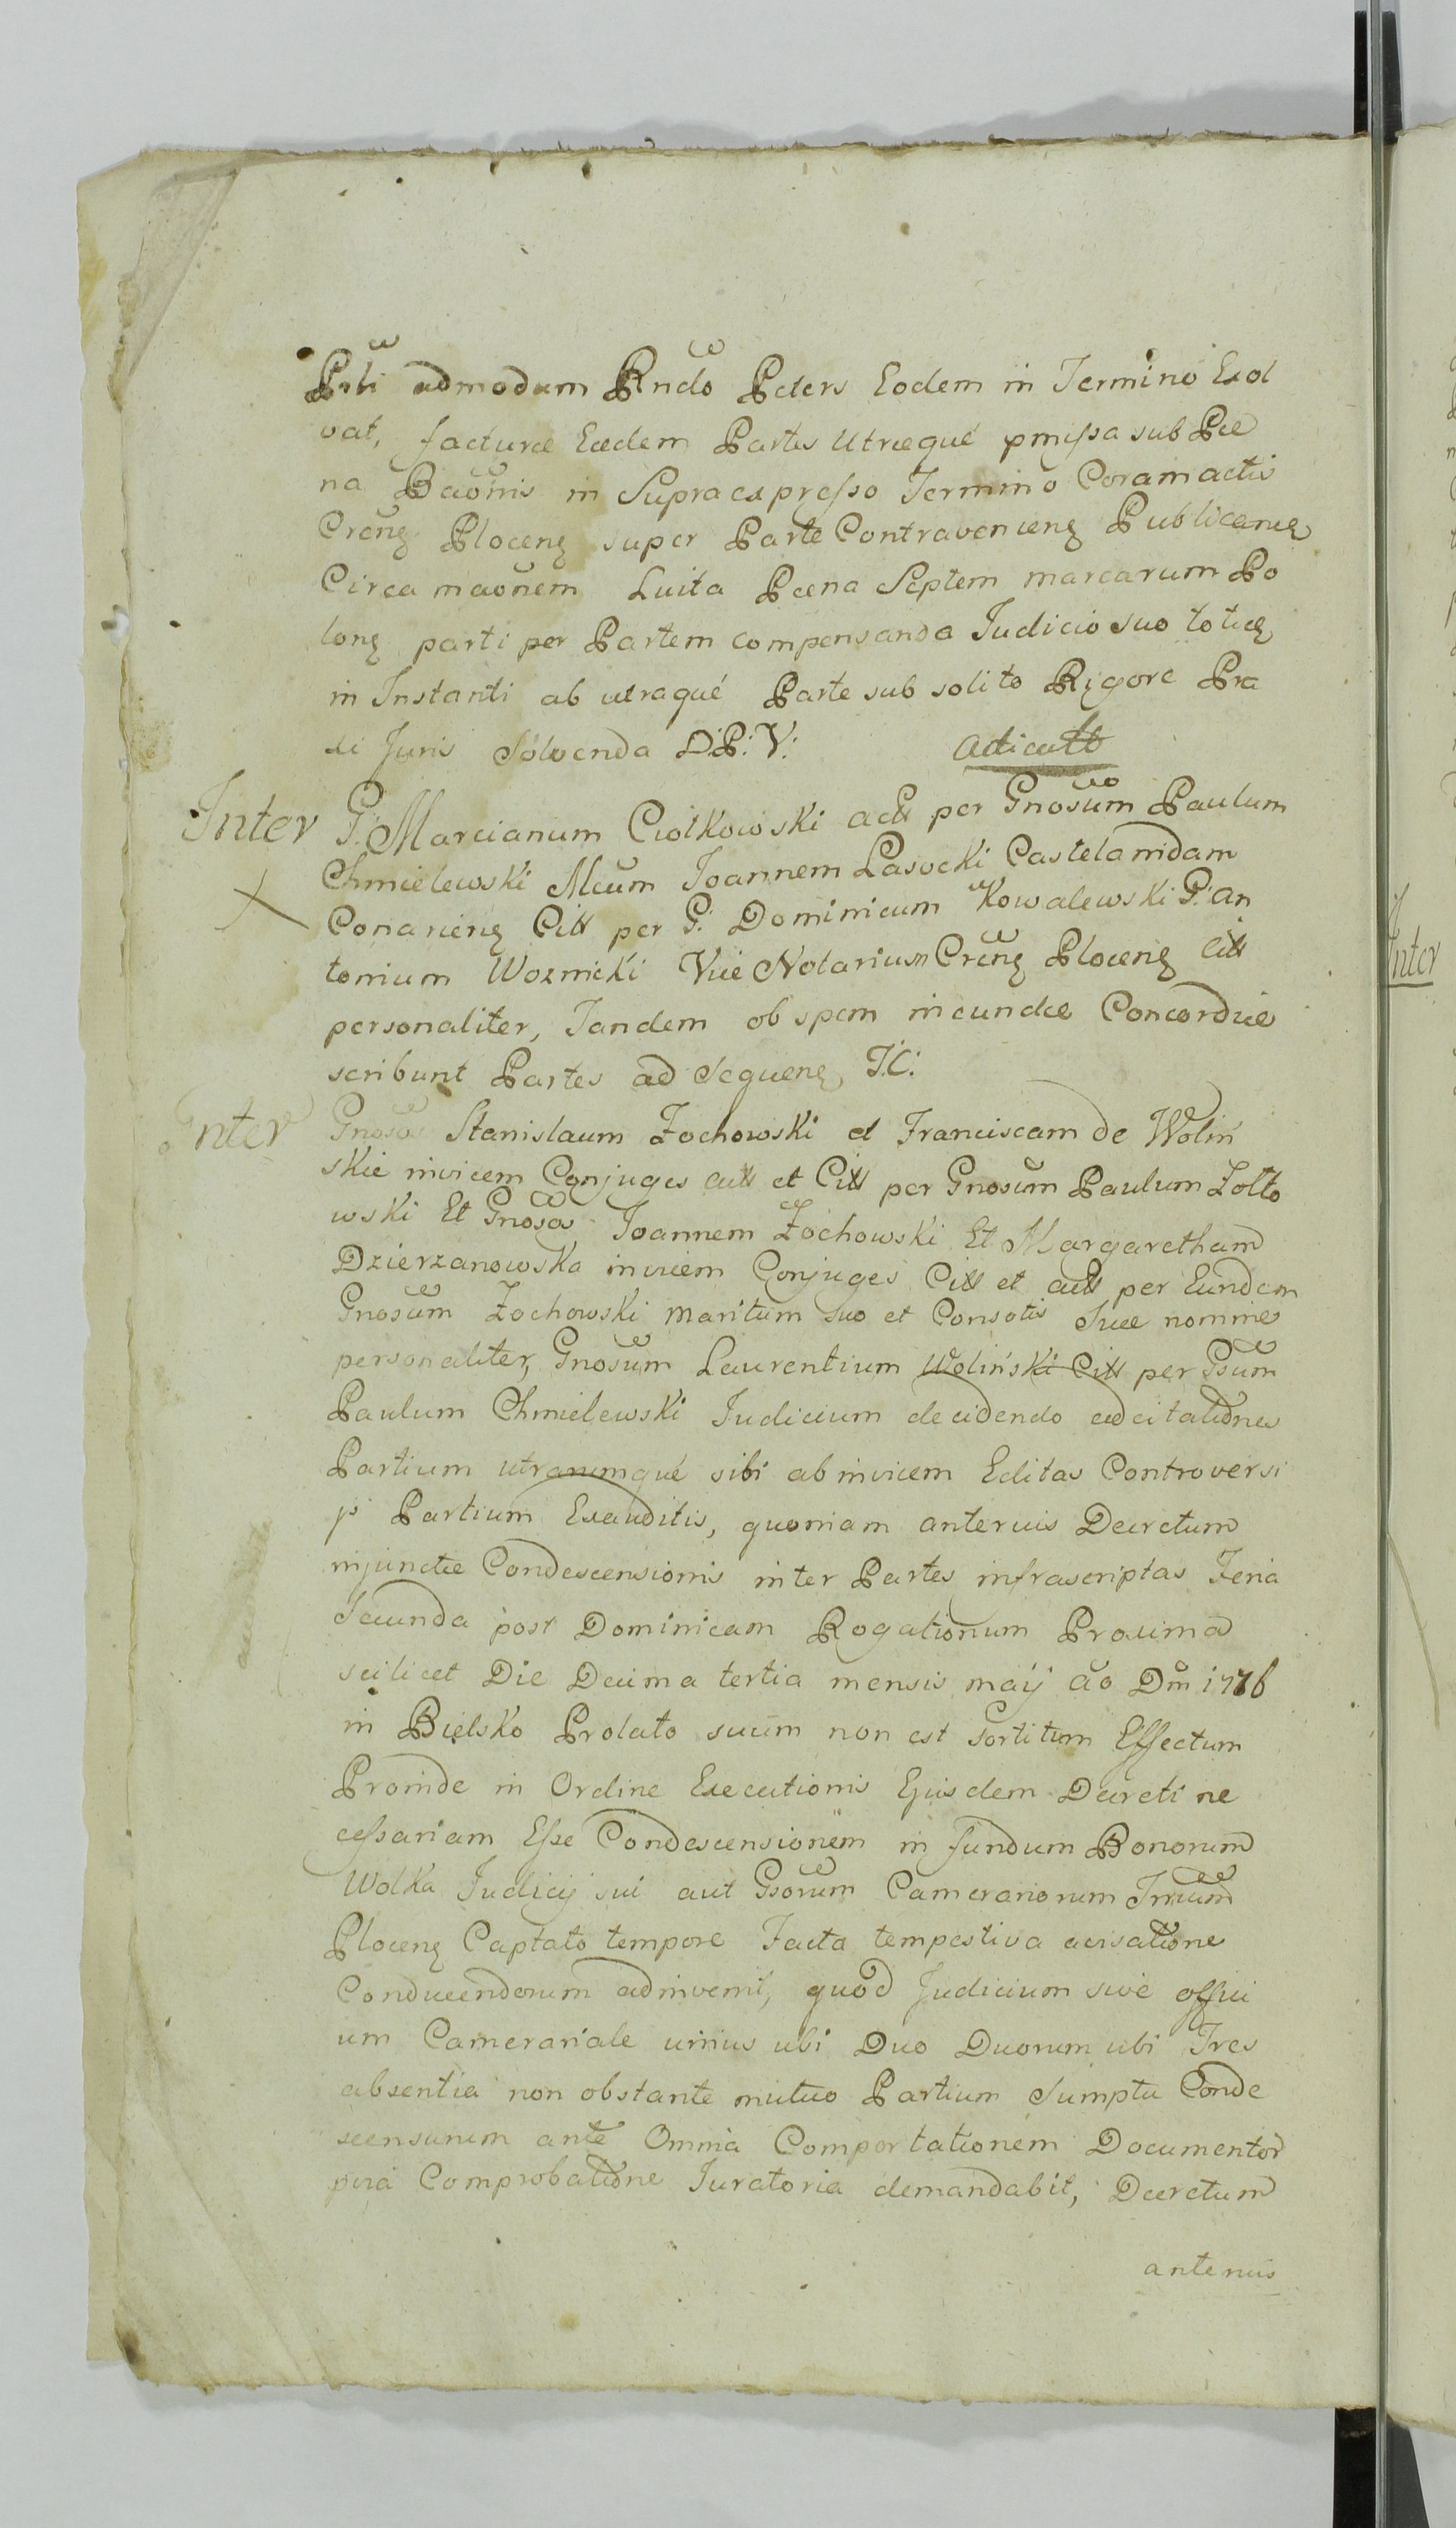 Prbi admodum Rndo Peters Eodem in Termino Exol
vat, facturæ Eædem Partes Utræqué pmissa sub Pæ
na Baõnis in Supraexpresso Termino Coram actis
Crenę Plocenę super Parte Contravenienę Publicanę
Circa maõnem Luita Pæna Septem marcarum Po
lonę parti per Partem compensanda Judicio suo totię
in Instanti ab utraqué Parte sub solito Rigore Pra
xi Juris Solvenda D:P:V:
Inter G: Marcianum Ciołkowski act per Gnosum Paulum
Chmielewski Mcum Joannem Lasocki Castelanidam
Conarienę Citt per G: Dominicum Kowalewski G: An
tonium Woznicki Vice Notarium Crenę Plocenę Citt
personaliter, Tandem ob spem ineundæ Concordiæ
scribunt Partes ad Sequenę T.C.
Inter Gnosos Stanislaum Żochowski et Franciscam de Woliń
skie invicem Conjuges act et Citt per Gnosum Paulum Zołto
wski Et Gnosos Joannem Żochowski Et Margaretham
Dzierzanowska invicem Conjuges Citt et act per Eundem
Gnosum Zochowski maritum suo et Consotis Suæ nomine
personaliter, Gnosum Laurentium Woliński Citt per Gsum
Paulum Chmielewski Judicium decidendo ad citationes
Partium utrarumqué sibi ab invicem Editas Controversi
js Partium Exauditis, quoniam anterius Decretum
injunctæ Condescensionis inter Partes infrascriptas Feria
Secunda post Dominicam Rogationum Proxima
scilicet Die Decima tertia mensis maij aõ Dm 1776
in Bielsko Prolato suum non est sortitum Effectum
Proinde in Ordine Executionis Ejusdem Decreti ne
cessariam Esse Condescensionem in fundum Bonorum
Wolka Judicij sui aut Gsorum Camerariorum
Plocenę Captato tempore Facta tempestiva avisatione
Conducendorum adinvenit, quod Judicium sive offici
um Camerariale unius ubi Duo Duorum ubi Tres
absentia non obstante mutuo Partium Sumptu Conde
scensurum ante Omnia Comportationem Documentor
Comprobatione Juratoria demandabit, Decretum
anterius
Inter